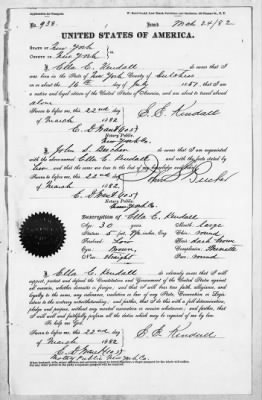 No. 938. Issued Mch 24/82
UNITED STATES OF AMERICA.
STATE OF New York
COUNTY OF New York
I, Ella C. Kendall do swear that I
was born in the State of New York County of
on or about the 16th day of July 1851; that I am
a native and loyal citizen of the United States of America, and am about to travel abroad
alone
Sworn to before me, this 22nd day
of March 1882
E. E. Kendall
Notary Public
New York Co.
I, John S. am acquainted
with the above named Ella C. Kendall and with the facts stated by
her and the same are true to the best of my knowledge and belief.
Sworn to before me, this 22nd day
of March 1882
Notary Public
New York Co.
Description of Ella C. Kendall
Age: 30 years
Stature: 5 feet inches, Eng.
Forehead: Low
Eyes: Brown
Nose: Straight
Mouth: Large
Chin: round
Hair: dark brown
Complexion: Brunette
Face: round
I, Ella C. Kendall do solemnly swear that I will
support, protect and defend the Constitution and Government of the United States against
all enemies, whether domestic or foreign; and that I will bear true faith, allegiance, and
loyalty to the same, any ordinance, resolution or law of any State Convention or Legis-
lature to the contrary notwithstanding; and further, that I do this with a full determination,
pledge and purpose, without any mental reservation or evasion whatsoever; and further, that
I will well and faithfully perform all the duties which may be required of me by law.
So help me God.
Sworn to before me, this 22nd day
of March 1882
E. E. Kendall
Notary Public New York Co.